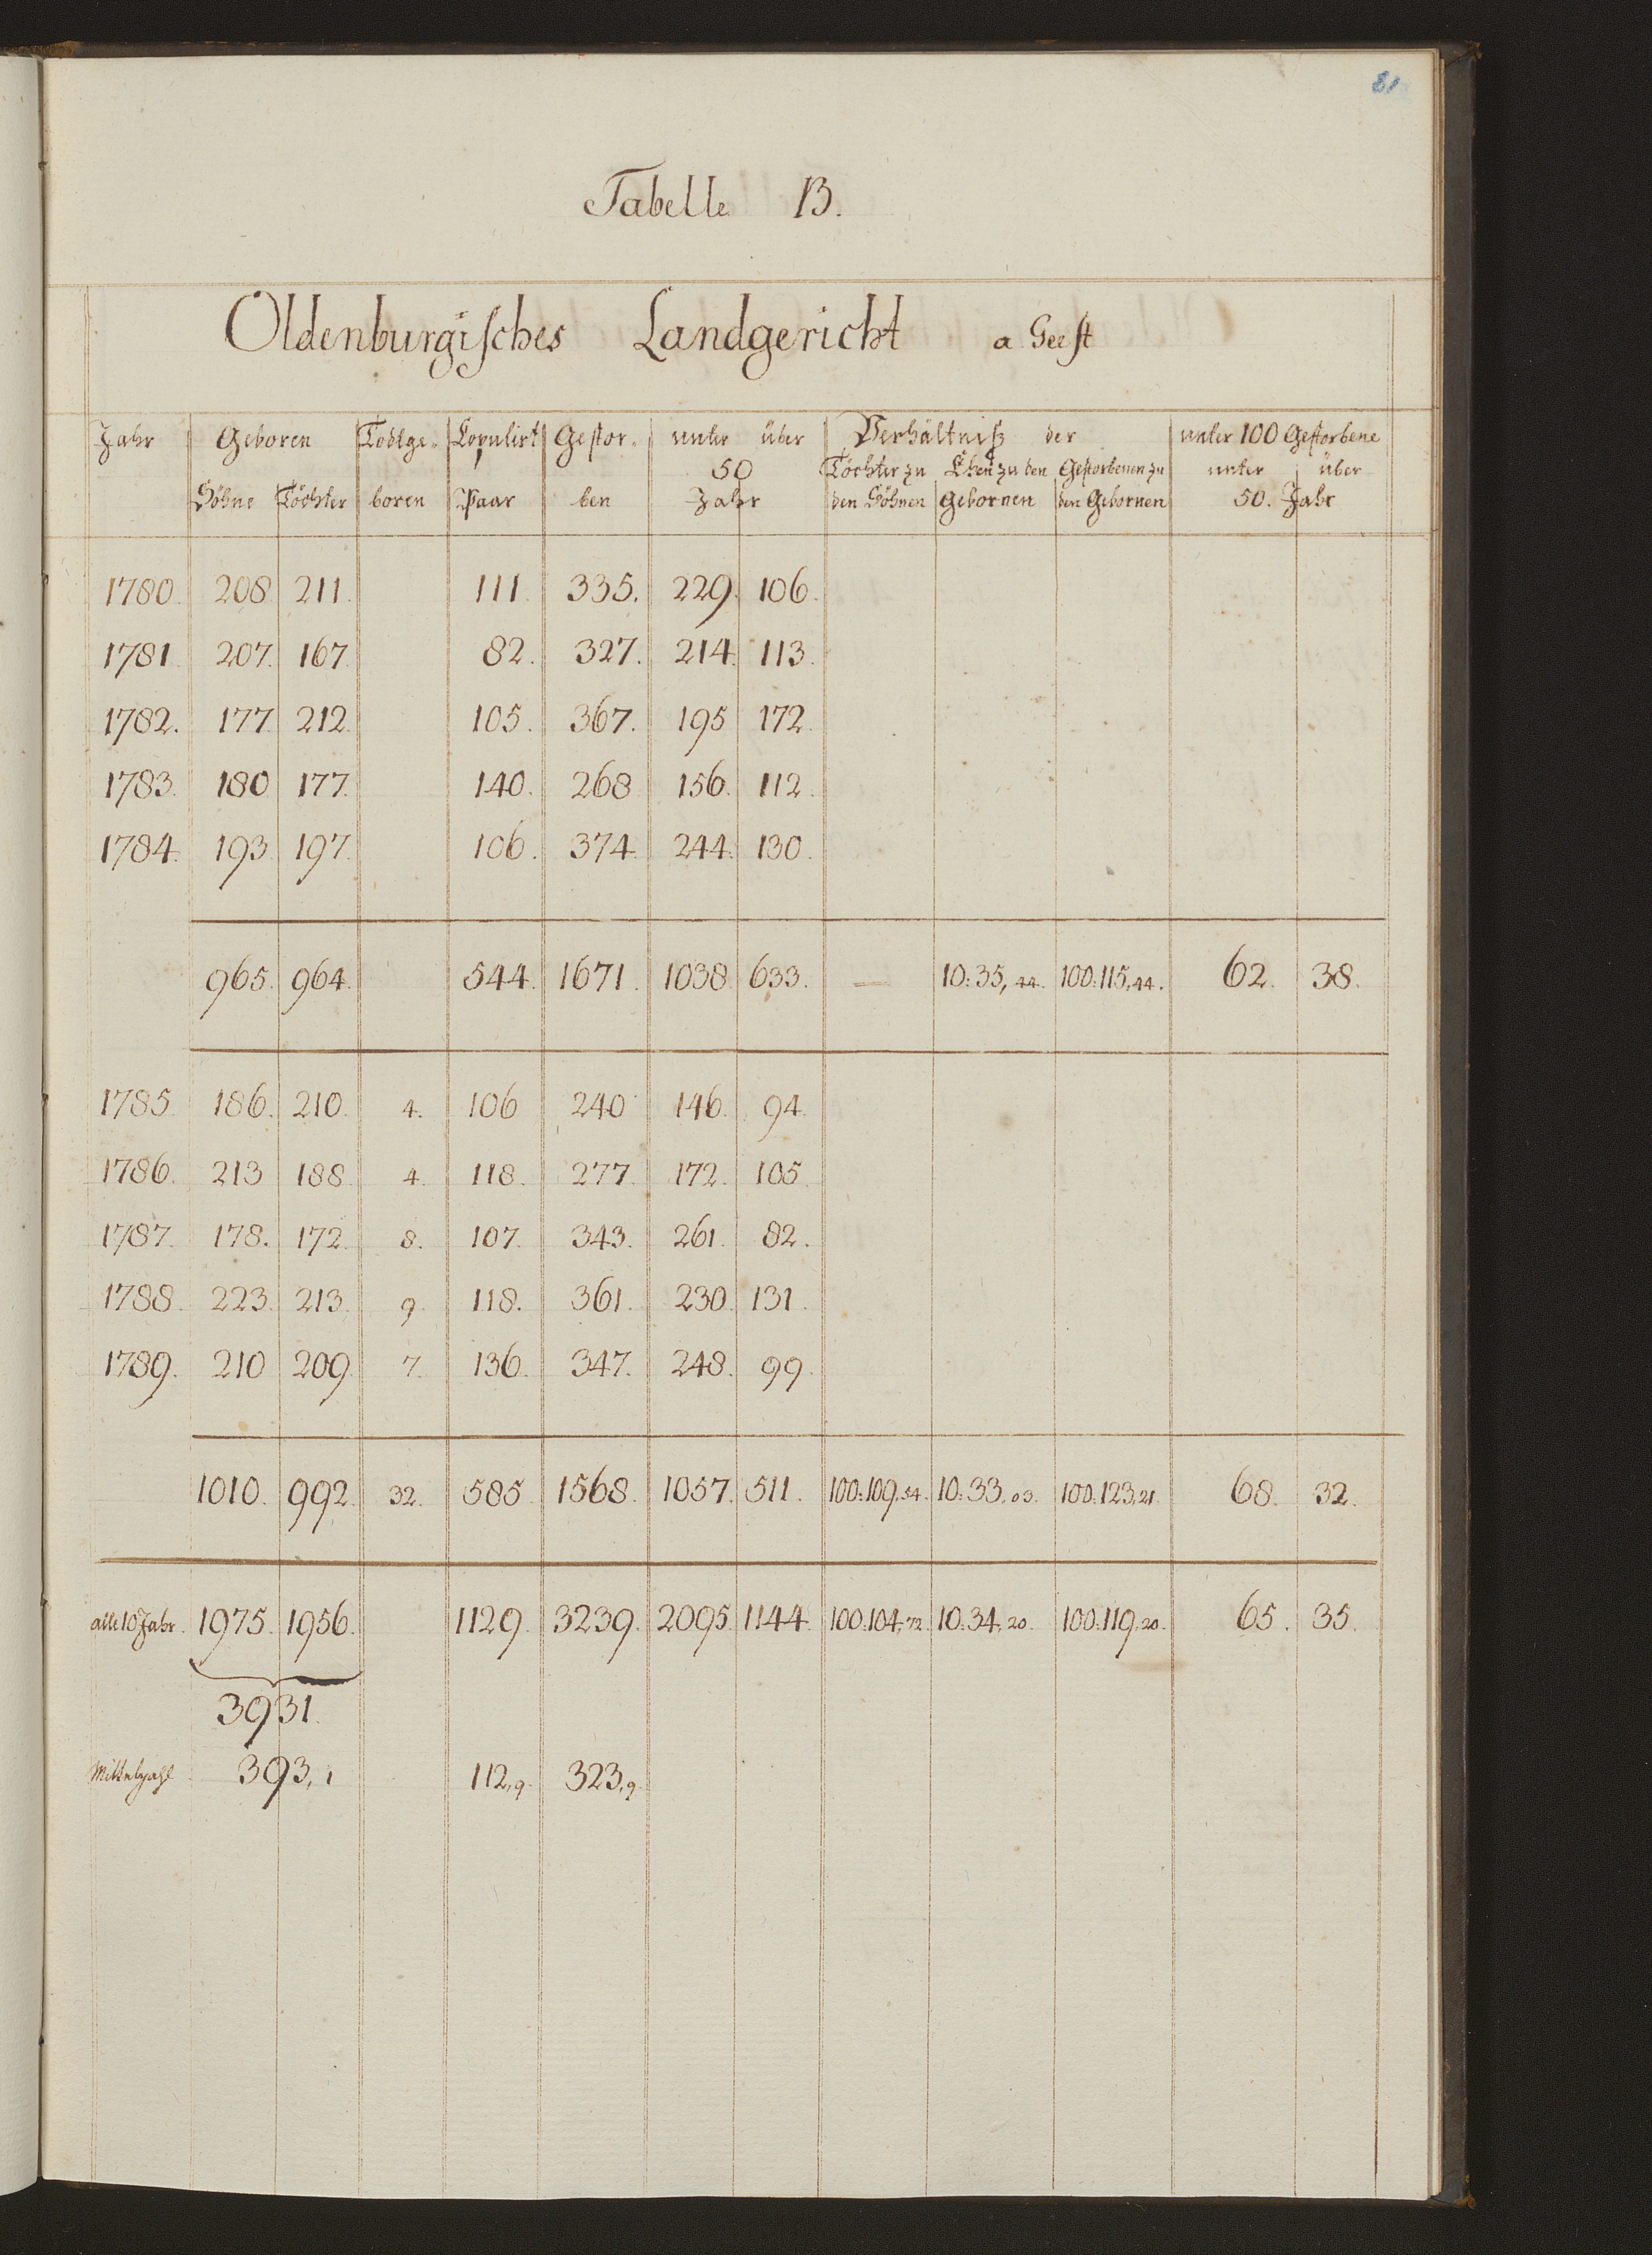 81
Tabelle B.
Oldenburgisches Landgericht a Geest
Jahr Geboren Todtge- Copulirt Gestor- unter über Verhältniß der unter 100 Gestorbene
50 Töchter zu Ehen zu den Gestorbenen zu unter über
Söhne Töchter boren Paar ben Jahr den Söhnen Gebornen den Gebornen 50. Jahr
1780. 208 211. 111. 335. 229. 106.
1781 207. 167. 82. 327. 214. 113.
1782. 177. 212. 105. 367. 195 172.
1783. 180 177. 140. 268 156. 112.
1784. 193. 197. 106. 374. 244. 130.
965. 964. 544. 1671. 1038. 633. — 10:35,44. 100:115,44. 62. 38.
1785. 186. 210. 4. 106 240 146. 94.
1786. 213 188. 4. 118. 277. 172. 105.
1787. 178. 172. 8. 107. 343. 261. 82.
1788. 223. 213. 9. 118. 361. 230. 131.
1789. 210 209. 7. 136. 347. 248. 99.
1010. 992. 32. 585. 1568. 1057. 511. 100:109,54. 10:33,03. 100:123,21. 68. 32.
alle 10 Jahr. 1975. 1956. 1129. 3239. 2095. 1144. 100:104,72. 10:34,20. 100:119,20. 65. 35.
3931.
Mittelzahl 393,1 112,9. 323,9.